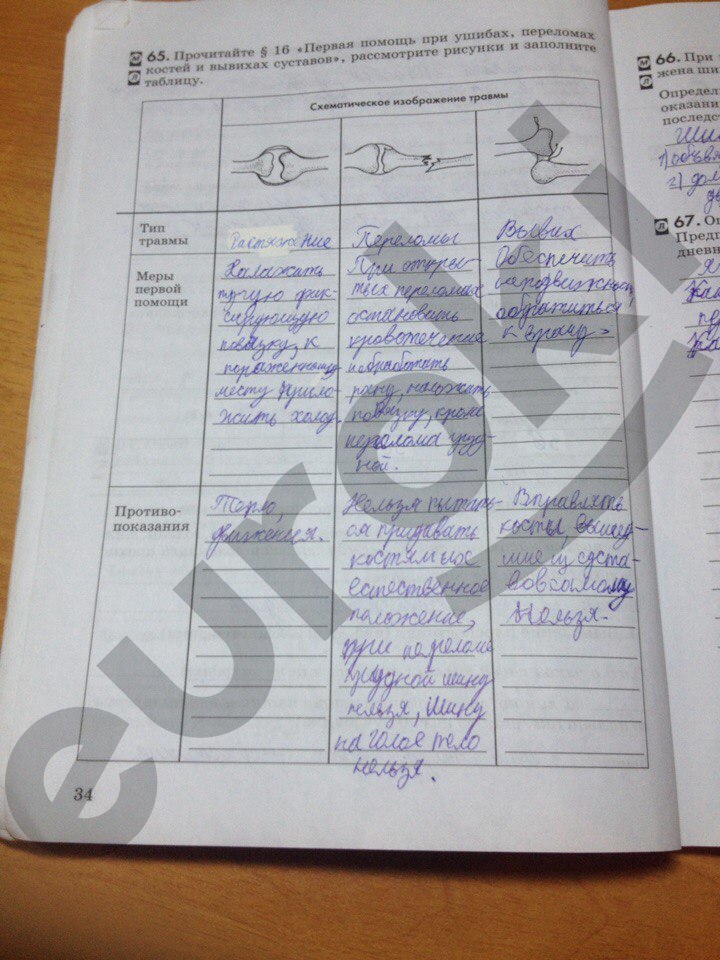 65. Прочитайте § 16 «Первая помощь при ушибах, переломах
костей и вывихах суставов», рассмотрите рисунки и заполните
таблицу.
Схематическое изображение травмы
Тип
травмы
Растяжение
Переломы
Вывих
Меры
первой
помощи
Наложить
тугую фик-
сирующую
повязку, к
пораженному
месту прило-
жить холод.
При откры-
тых переломах
остановить
кровотечение
и обработать
рану, наложить
повязку, кроме
перелома груд-
ной.
Обеспечить
неподвижность,
обратиться
к врачу
Противо-
показания
Тепло,
движения.
Нельзя пытать-
ся придавать
костям их
естественное
положение,
при переломе
грудной шину
нельзя, шину
на голое тело
нельзя.
Вправлять
кости, вышед-
шие из суста-
вов самому
нельзя.
34
66. При
жена ши
Определ
оказани
последст
67. Оп
Предп
дневн
euroki